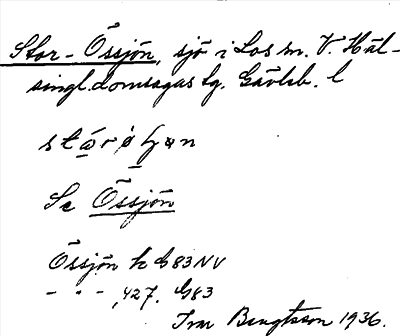 Stor-Össjön, sjö i Los sn. V. Häl-
singl. domsagas tg. Gävleb. l
Se Össjön
Össjön k G83NV
- " - , 427. G83
Ivar Bengtsson 1936.